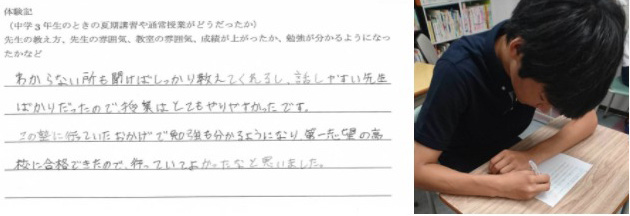 体験記
(中学3年生のときの夏期講習や通常授業がどうだったか)
先生の教え方、先生の雰囲気、教室の雰囲気、成績が上がったか、勉強が分かるようになっ
たかなど
わからない所も聞けばしっかり教えてくれるし、話しやすい先生
ばかりだったので、授業はとてもやりやすかったです。
この塾に行っていたおかげで勉強も分かるようになり、第一志望の高
校に合格できたので、行っていてよかったなと思いました。